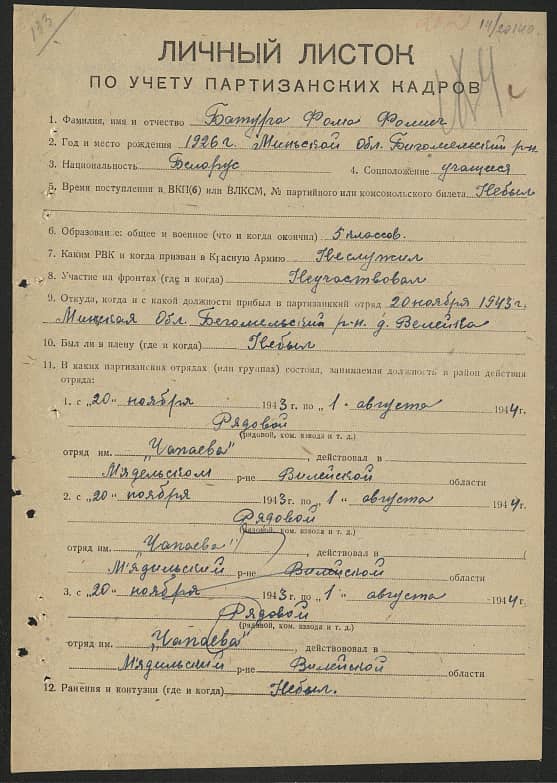 183
14/20140
ЛИЧНЫЙ ЛИСТОК
ПО УЧЕТУ ПАРТИЗАНСКИХ КАДРОВ
1. Фамилия, имя и отчество Батура Фома Фомич
2. Год и место рождения 1926 г. Минской Обл. Бигомельский р-н
3. Национальность Белорус 4. Соцположение учащиеся
5. Время поступления в ВКП(б) или ВЛКСМ, № партийного или комсомольского билета Небыл
6. Образование: общее и военное (что и когда окончил) 5 классов.
7. Каким РВК и когда призван в Красную Армию Неслужил
8. Участие на фронтах (где и когда) Неучаствовал
9. Откуда, когда и с какой должности прибыл в партизанский отряд 20 ноября 1943 г.
Минская Обл. Бегомельский р-н. д. Велейка
10. Был ли в плену (где и когда) Небыл
11. В каких партизанских отрядах (или группах) состоял, занимаемая должность и район действия
отряда:
1. с „20" ноября 1943 г. по „1" августа 1944 г.
Рядовой
(рядовой, ком. взвода и т. д.)
отряд им. „Чапаева", действовал в
Мядельском р-не Вилейской области
2. с „20" ноября 1943 г. по „1" августа 1944 г.
Рядовой
(рядовой, ком. взвода и т. д.)
отряд им. „Чапаева", действовал в
Мядильский р-не Вилейской области
3. с „20" ноября 1943 г. по „1" августа 1944 г.
Рядовой
(рядовой, ком. взвода и т. д.)
отряд им. „Чапаева", действововал в
Мядильский р-не Вилейской области
12. Ранения и контузии (где и когда) Небыл.